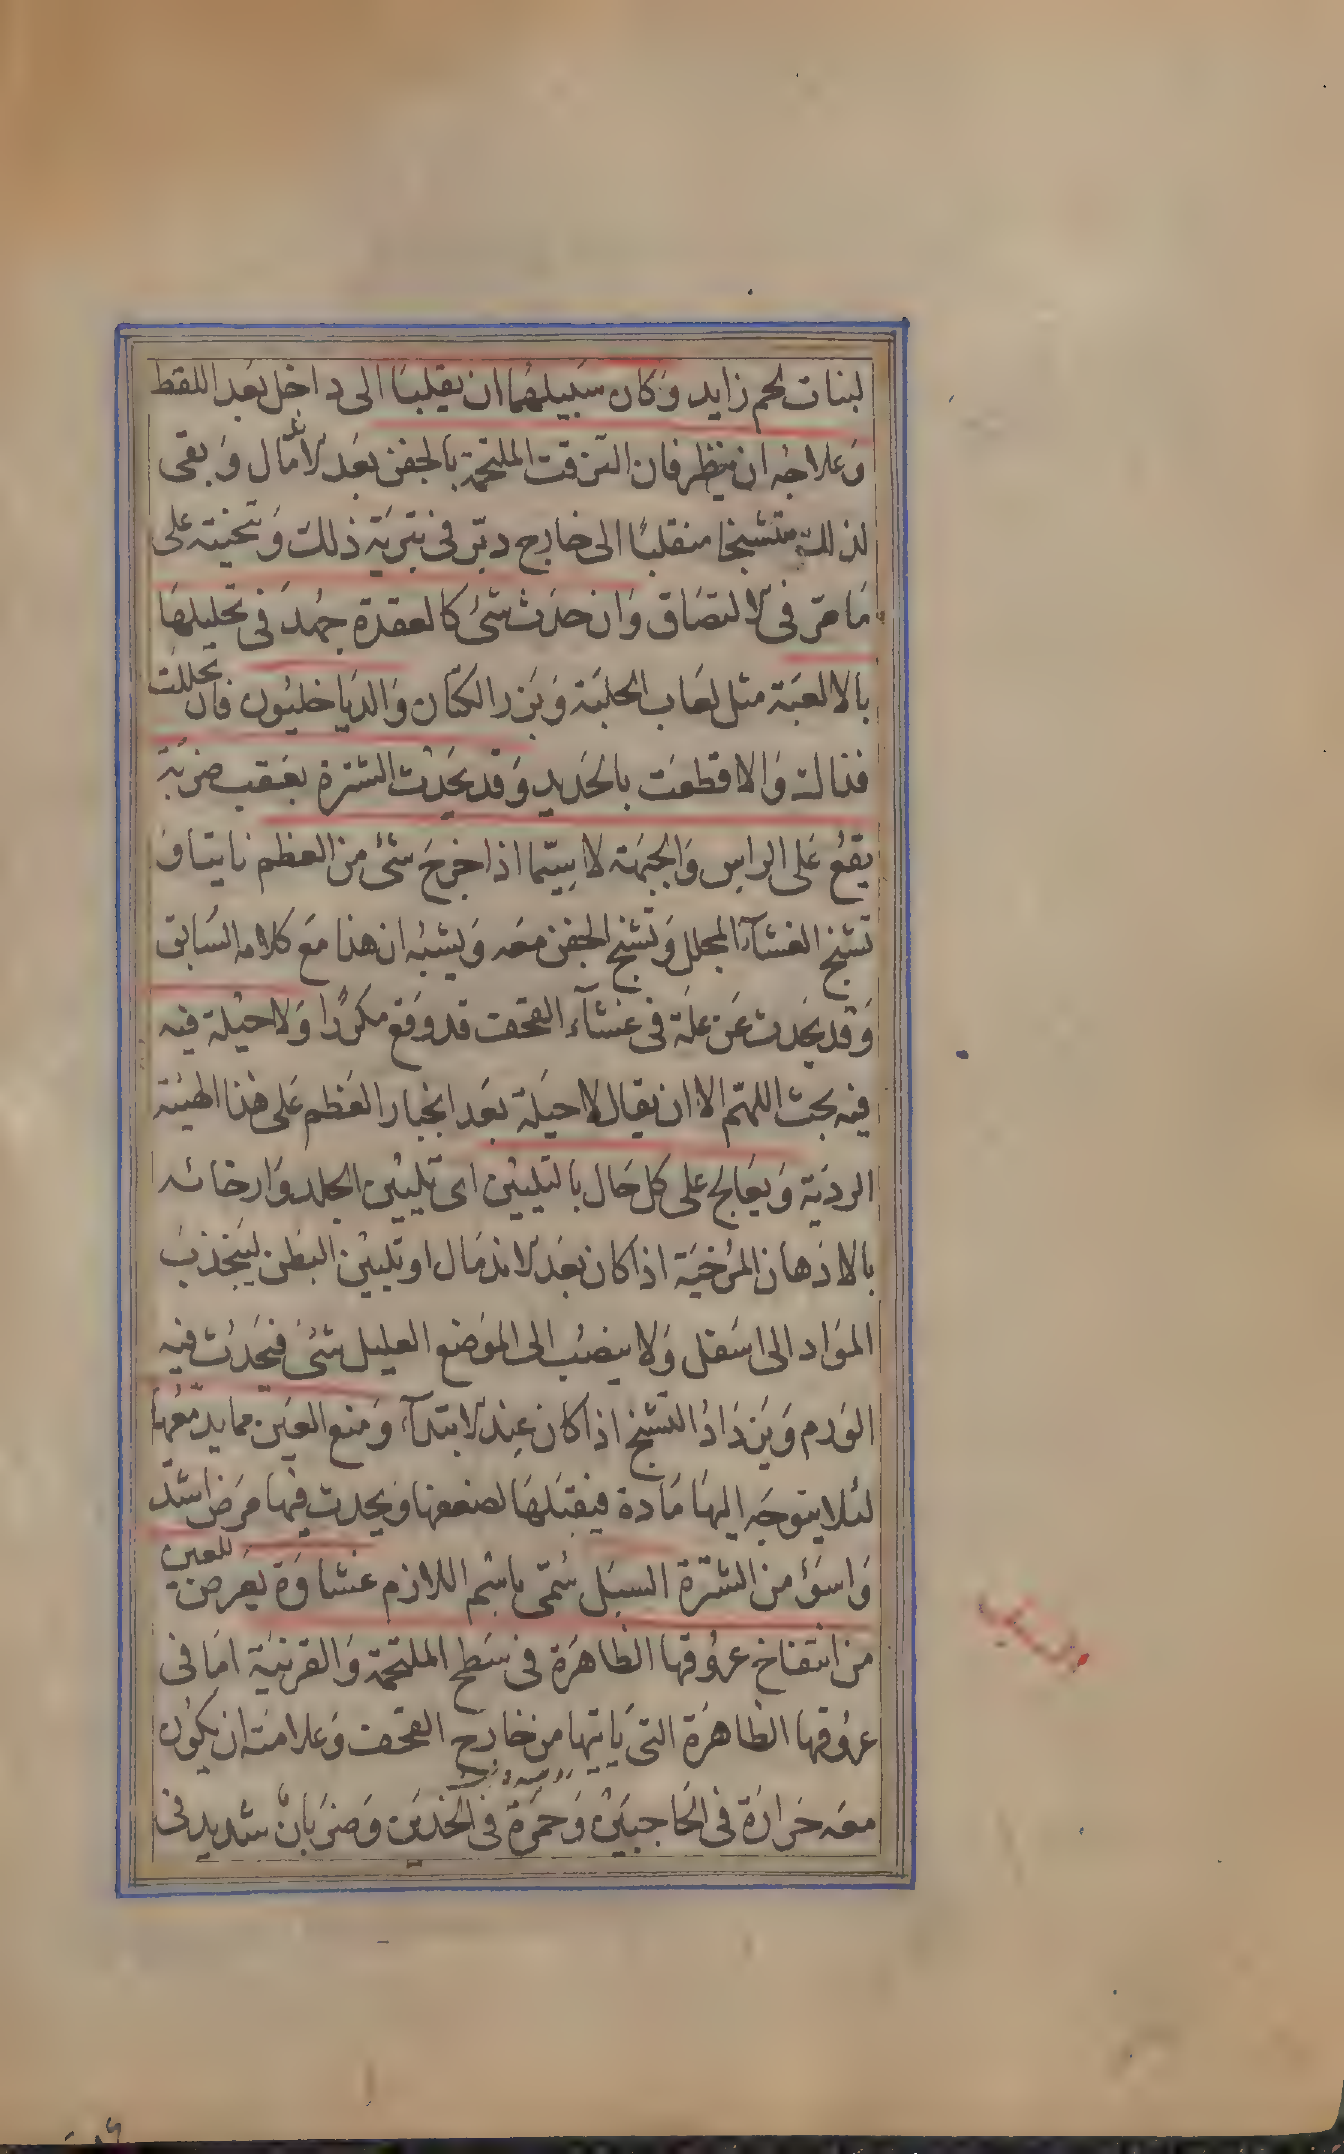 لبنات لحم زايد وكان سبيلهما ان يقلبا الى داخل بعد اللقط
وعلاجه ان ينظر فان التزقت الملتحمة بالجفن بعد الاندمال وبقى
لذلك متشنجا منقلبا الى خارج دبر في تبرية ذلك وتنحيته على
ما مر في الالتصاق وان حدث شئ كالعقدة جهد في تحليلها
بالالعبة مثل لعاب الحلبة وبزر الكتان والدياخليون فان تحللت
فذالك والا قطعت بالحديد وقد يحدث الشترة بعقب ضربة
يقع على الراس والجبهة لا سيما اذا خرج شئ من العظم ناتيا و
تشنج الغشاء المجلل وتشنج الجفن معه ويشبه ان هذا مع كلامه السابق
وقد يحدث عن علة في غشاء القحف قد وقع مكررا ولا حيلة فيه
فيه بحث اللهم الا ان يقال لا حيلة بعد انجبار العظم على هذا الهيئة
الردية ويعالج على كل حال بالتليين اى تليين الجلد وارخائه
بالادهان المرخية اذا كان بعد الاندمال او تليين البطن لينجذب
المواد الى اسفل ولا ينصب الى الموضع العليل شئ فيحدث فيه
الورم ويزداد التشنج اذا كان عند الابتداء ومنع العين مما يدمعها
لئلا يتوجه اليها مادة فيقبلها لضعفها ويحدث فيها مرض اشد
واسوأ من الشترة السبل سمى باسم اللازم غشاوة يعرض للعين
من انتفاخ عروقها الظاهرة في سطح الملتحمة والقرنية اما في
عروقها الظاهرة التى ياتيها من خارج القحف وعلامته ان يكون
معه حرارة في الحاجبين وحمرة في الخدين وضربان شديد في
السبل